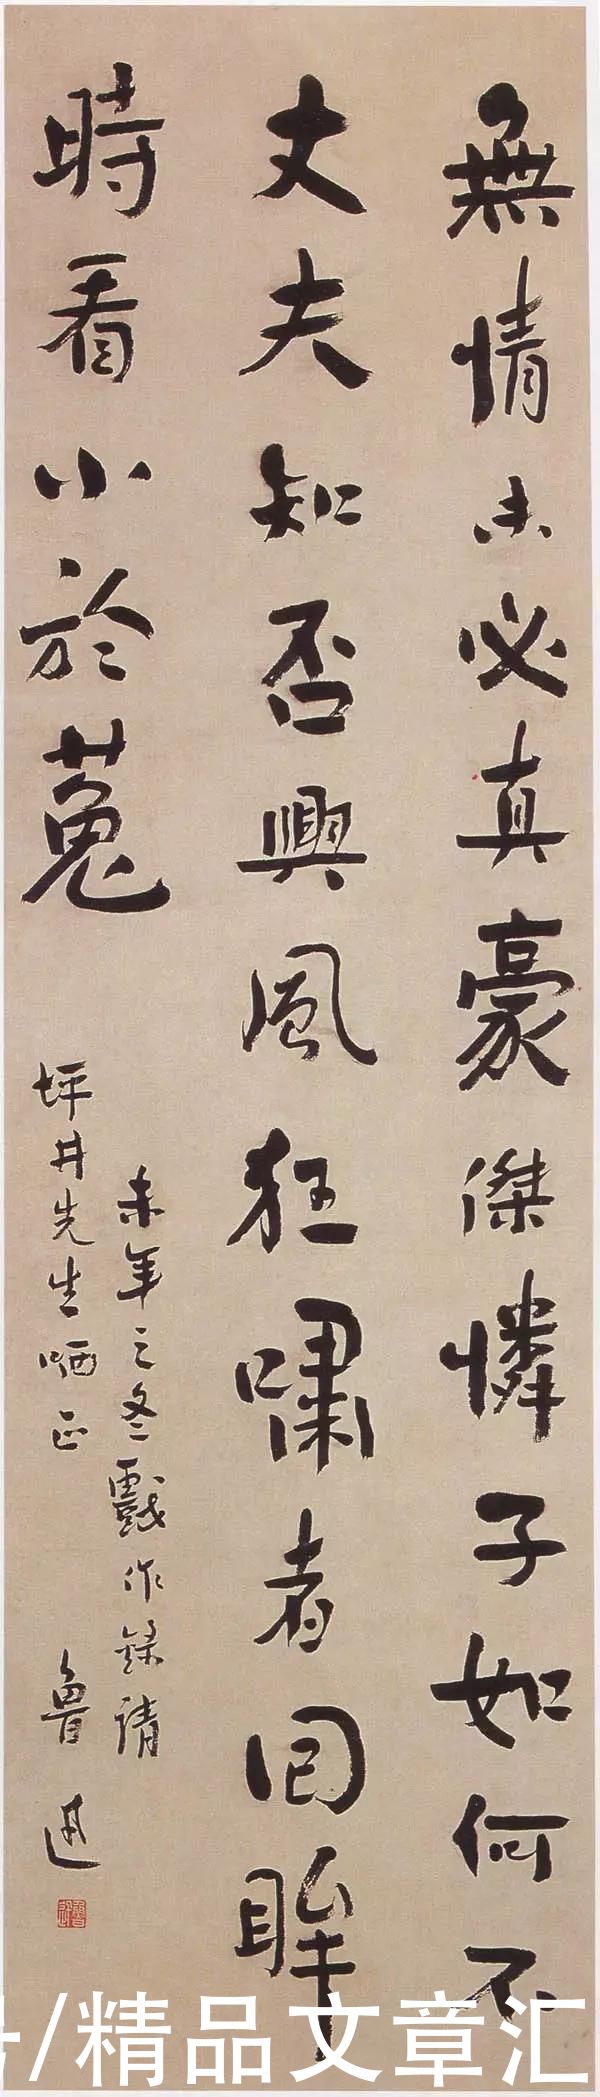 無情未必真豪傑憐子如何不
丈夫知否興風狂嘯者回眸
時看小於菟
未年之冬戲作錄請
坪井先生哂正
魯迅
/精品文章汇